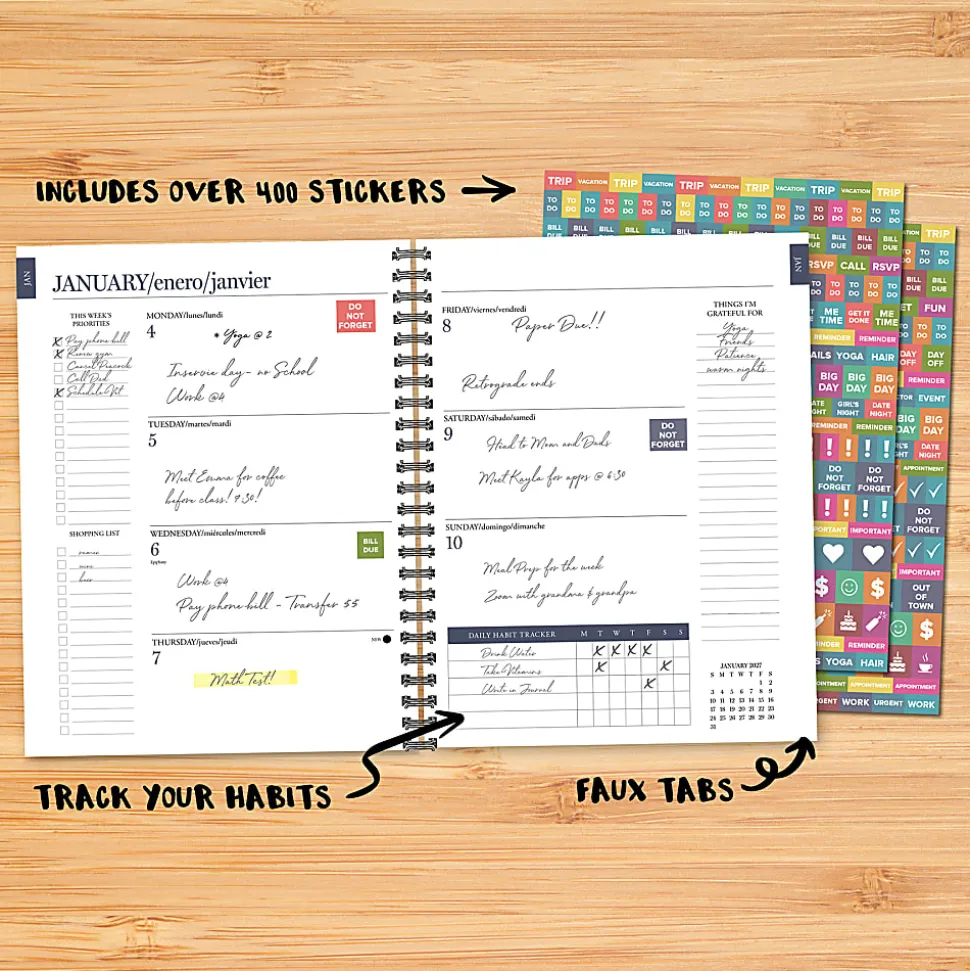 INCLUDES OVER 400 STICKERS
JAN
JANUARY/enero/janvier
THIS WEEK'S
PRIORITIES
X Pay phone bill
X Renew gym
Cancel Peacock
Call Dad
X Schedule Vet
SHOPPING LIST
MONDAY/lunes/lundi
4
DO
NOT
FORGET
* Yoga @ 2
Inservice day - no School
Work @4
TUESDAY/martes/mardi
5
Meet Emma for coffee
before class! 7:30!
WEDNESDAY/miércoles/mercredi
6
Epiphany
BILL
DUE
Work @4
Pay phone bill - Transfer 55
THURSDAY/jueves/jeudi
7
NEW
Math Test!
FRIDAY/viernes/vendredi
8
Paper Due!!
Retrograde ends
SATURDAY/sábado/samedi
9
DO
NOT
FORGET
Head to Mom and Dads
Meet Kayla for apps @ 6:30
SUNDAY/domingo/dimanche
10
Meal Prep for the week
Zoom with grandma & grandpa
DAILY HABIT TRACKER M T W T F S S
Drink Water X X X X
Take Vitamins X X
Write in Journal X
JAN
THINGS I'M
GRATEFUL FOR
Yoga
Friends
Patience
warm nights
JANUARY 2027
S M T W T F S
1 2
3 4 5 6 7 8 9
10 11 12 13 14 15 16
17 18 19 20 21 22 23
24 25 26 27 28 29 30
31
TRIP VACATION TRIP VACATION TRIP VACATION TRIP VACATION TRIP VACATION TRIP
TO DO TO DO TO DO TO DO TO DO TO DO TO DO TO DO TO DO TO DO TO DO TO DO
BILL DUE BILL DUE BILL DUE BILL DUE
RSVP CALL RSVP
TO DO TO DO TO DO TO DO
ME TIME GET IT DONE ME TIME
REMINDER REMINDER
YOGA HAIR
BIG DAY BIG DAY BIG DAY
GIRL'S NIGHT DATE NIGHT
REMINDER REMINDER
! ! ! !
DO NOT FORGET DO NOT FORGET
! ! ! !
IMPORTANT
$ $
REMINDER
YOGA HAIR
TRIP
TO DO TO DO
BILL DUE BILL DUE
FUN
TO DO TO DO
DAY OFF DAY OFF
REMINDER
EVENT
BIG DAY BIG DAY
DATE NIGHT
APPOINTMENT
DO NOT FORGET
IMPORTANT
OUT OF TOWN
$
APPOINTMENT APPOINTMENT
URGENT WORK URGENT WORK
TRACK YOUR HABITS
FAUX TABS